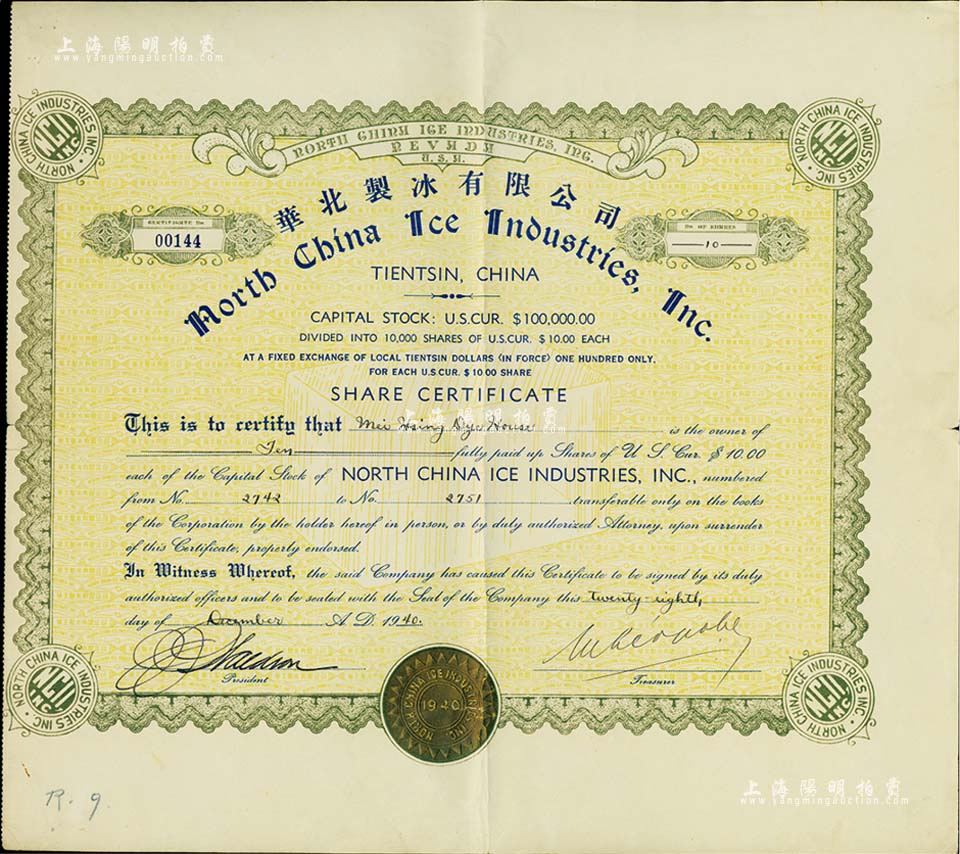 上海陽明拍賣
www.yangmingauction.com
NORTH CHINA ICE INDUSTRIES INC.
N.C.I.I. INC.
NORTH CHINA ICE INDUSTRIES, INC.
NEVADA
U.S.A.
NORTH CHINA ICE INDUSTRIES INC.
N.C.I.I. INC.
CERTIFICATE No.
00144
No. OF SHARES
—10—
華北製冰有限公司
North China Ice Industries, Inc.
TIENTSIN, CHINA
CAPITAL STOCK: U.S.CUR. $100,000.00
DIVIDED INTO 10,000 SHARES OF U.S.CUR. $10.00 EACH
AT A FIXED EXCHANGE OF LOCAL TIENTSIN DOLLARS (IN FORCE) ONE HUNDRED ONLY,
FOR EACH U.S.CUR. $10.00 SHARE
SHARE CERTIFICATE
上海陽明拍賣
www.yangmingauction.com
This is to certify that Mei Hsing Dye House is the owner of
Ten fully paid up Shares of U S Cur. $10.00
each of the Capital Stock of NORTH CHINA ICE INDUSTRIES, INC., numbered
from No. 2742 to No. 2751 transferable only on the books
of the Corporation by the holder hereof in person, or by duly authorized Attorney, upon surrender
of this Certificate, properly endorsed.
In Witness Whereof, the said Company has caused this Certificate to be signed by its duly
authorized officers and to be sealed with the Seal of the Company this twenty-eighth
day of December A.D. 1940.
President
Treasurer
NORTH CHINA ICE INDUSTRIES INC.
N.C.I.I. INC.
NORTH CHINA ICE INDUSTRIES INC
1940
NORTH CHINA ICE INDUSTRIES INC.
N.C.I.I. INC.
R. 9
上海陽明拍賣
www.yangmingauction.com